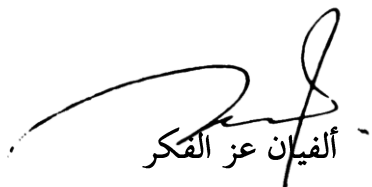 ألفيان عز الفكر